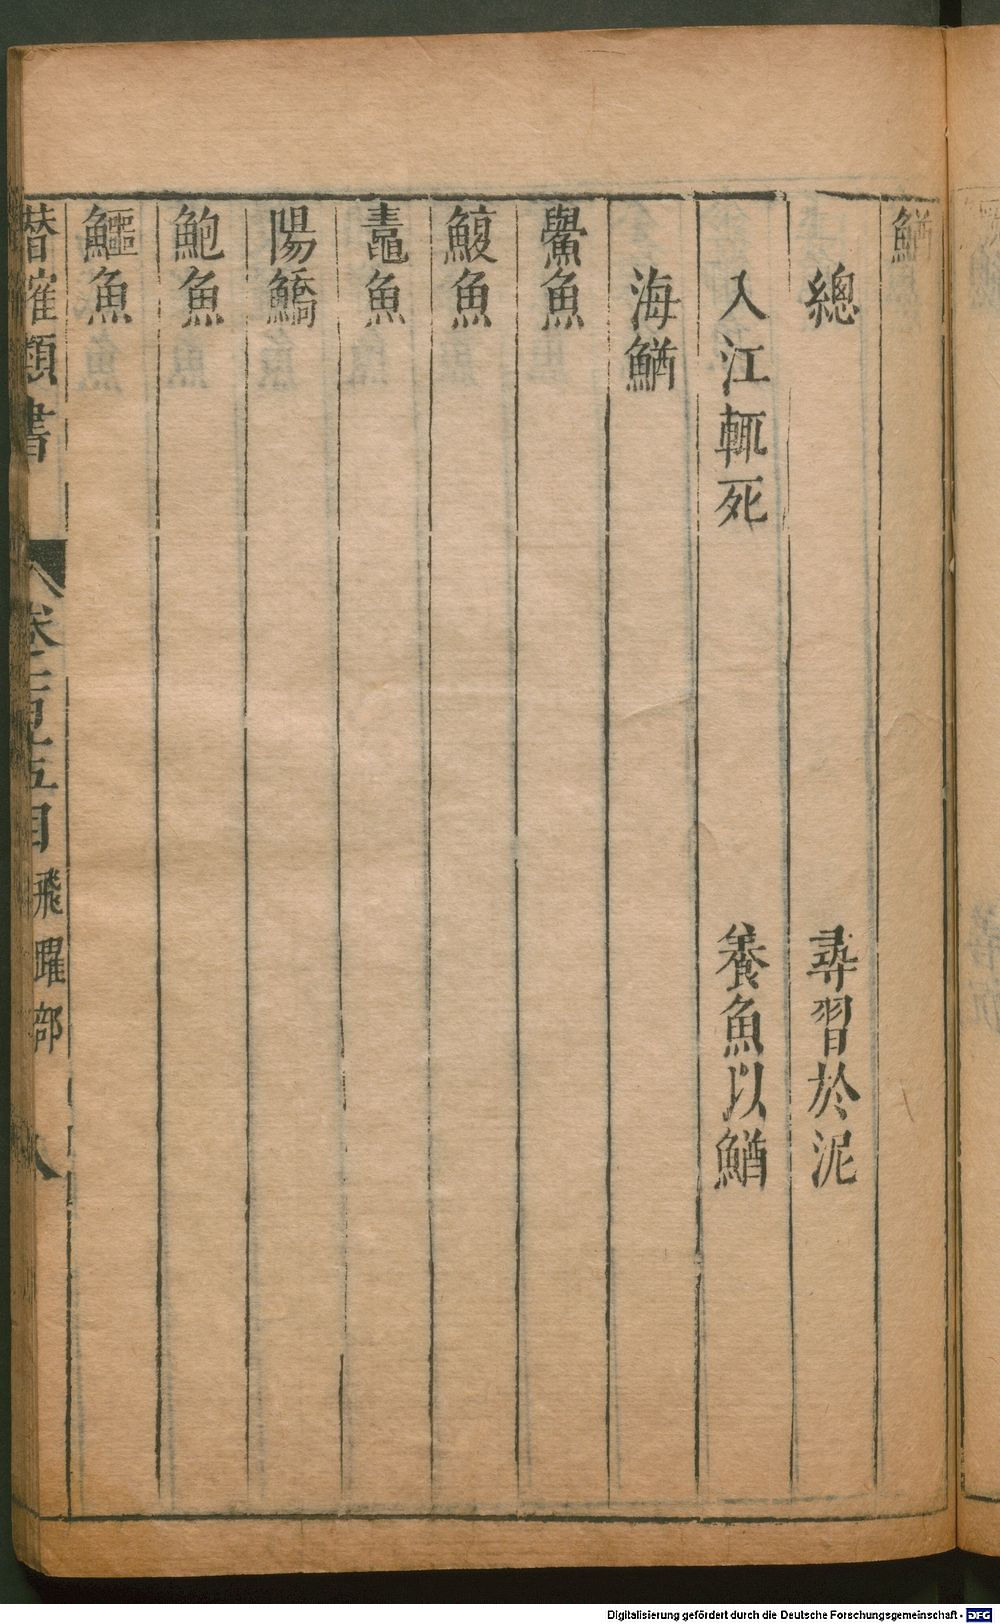 鰌
總 尋習於泥
入江輒死 養魚以鰌
海鰌
鱟魚
鰒魚
鼊魚
陽鱎
鮑魚
鰸魚
潛確類書 卷一百五目 飛躍部 八
Digitalisierung gefördert durch die Deutsche Forschungsgemeinschaft - DFG